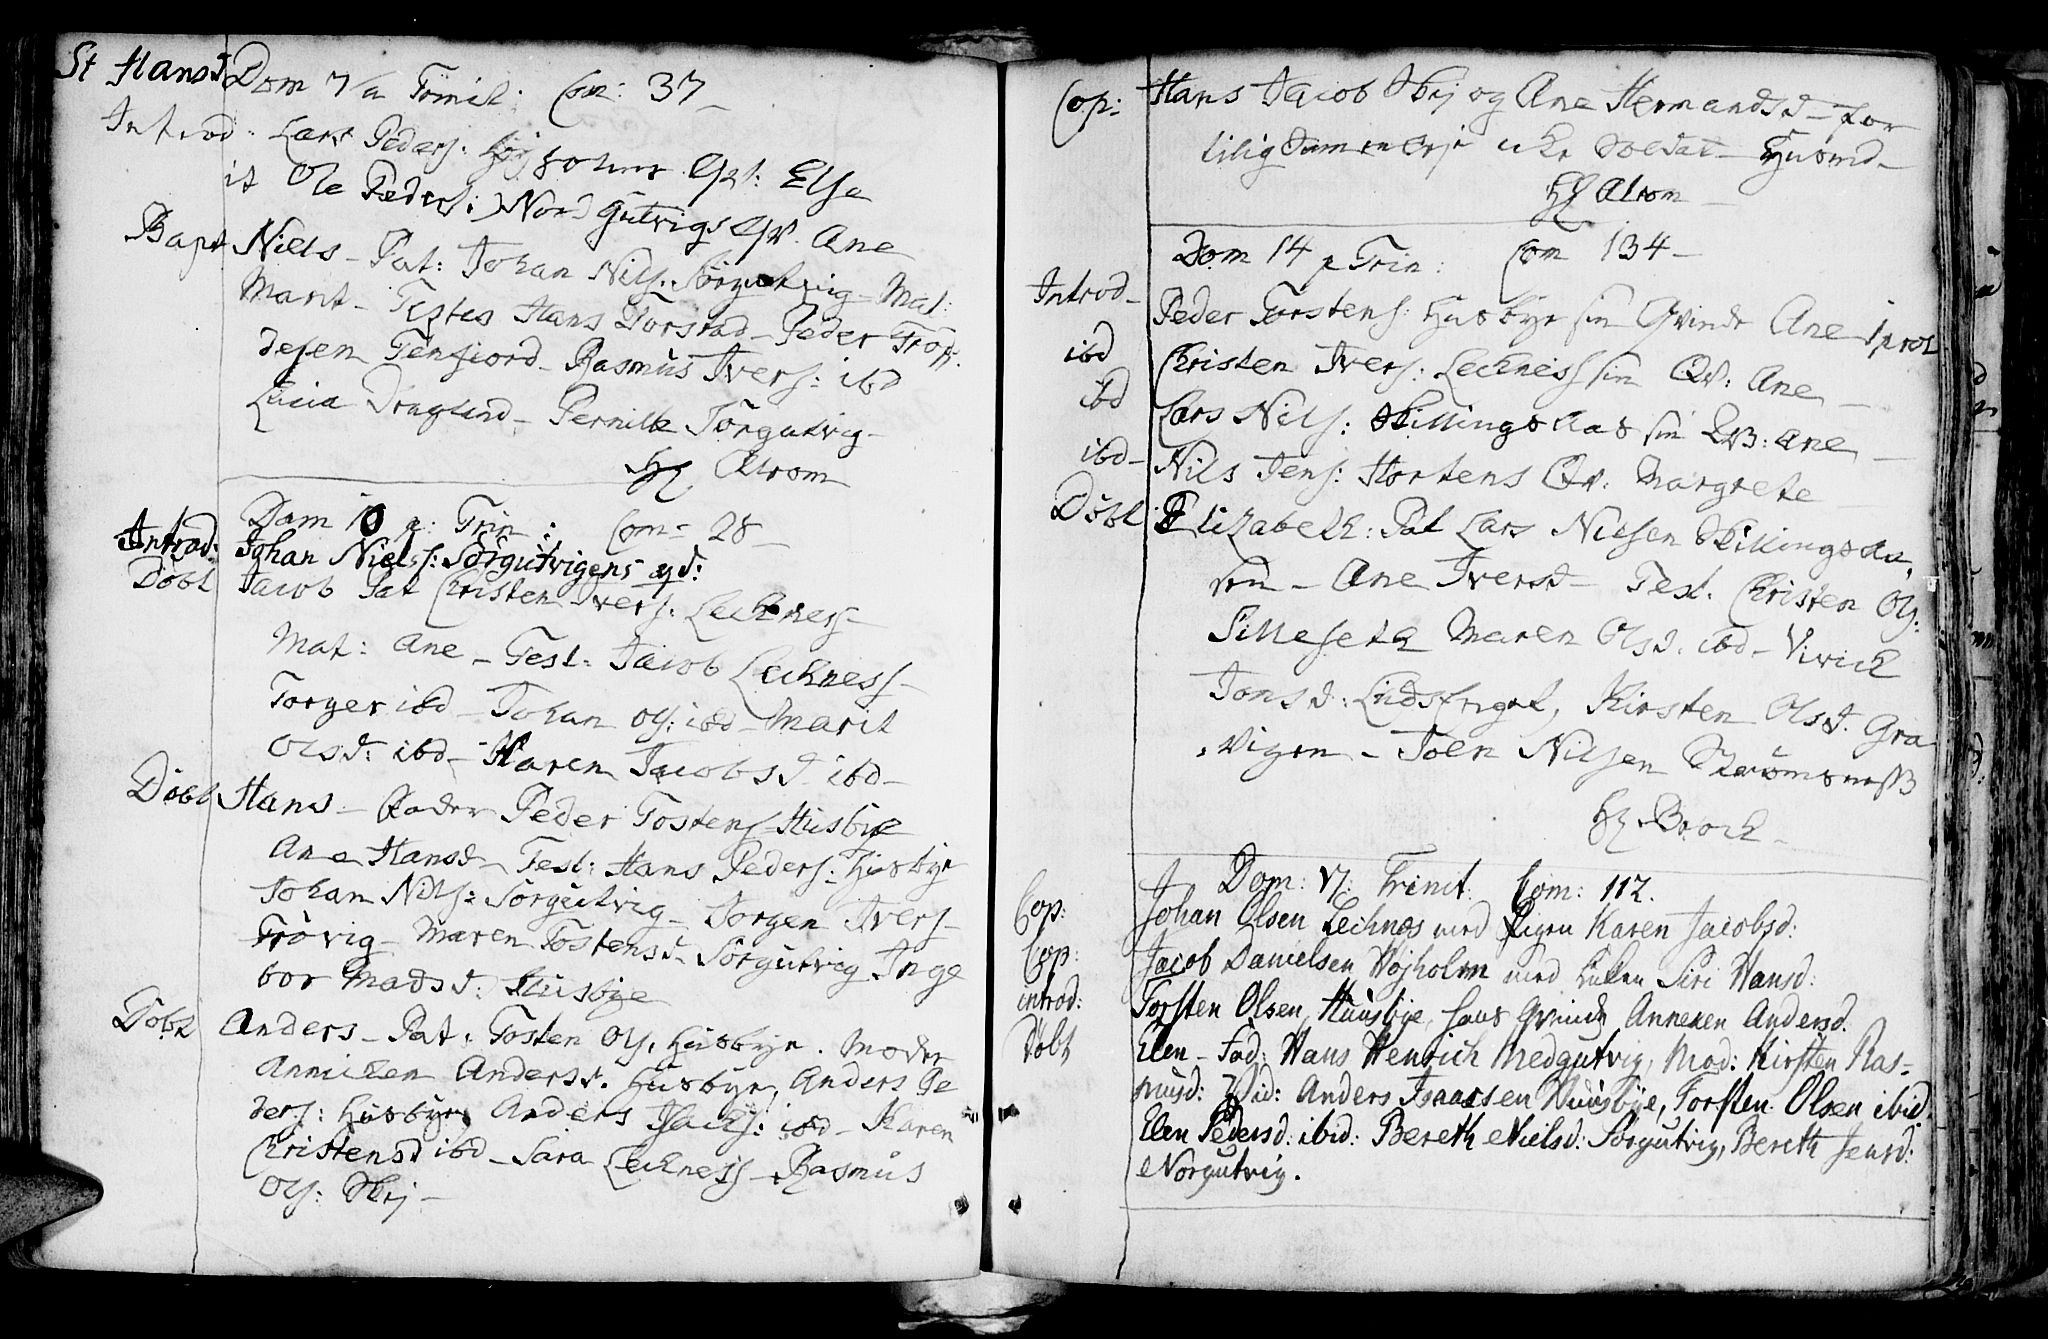 St Hansd Dom 7 a Trinit: Com: 37
Introd: Lars Peders: Qv: Else
it Ole Peders: Nordgutvigs Qv. Ane
Bapt Niels - Pat: Johan Nils. Sørgutvig - Mat:
Marit - Testes Hans Torstad - Peder Trod
desen Tenfiord - Rasmus Ivers: ibd
Lucia Draglund - Pernille Sørgutvig -
Hr Alrom
Dom 10 p: Trin: Com= 28 -
Introd: Johan Niels: Sørgutvigens qv:
Døbt Jacob Pat Christen Ivers: Leckness -
Mat: Ane - Test: Jacob Leckness -
Torger ibd - Johan Ols: ibd - Marit
Olsd: ibd - Karen Jacobsd ibd -
Døbt Hans - Fader Peder Tostens Husbye
Ane Hansd - Test: Hans Peders: Husbye
Johan Nils: Sørgutvig - Jorgen Ivers -
Trøvig - Maren Tostensd - Sørgutvig Inge
bor Madsd: Husbye
Døbt Anders - Pat: Tosten Ols. Husbye. Moder
Anniken Andersd. Husbye, Anders Pe
ders: Husbye, Anders Isachs: ibd - Karen
Christensd ibd - Sara Leckness - Rasmus
Ols: Skej -
Cop: Hans Jacob Skej og Ane Hermandsd - for
tilig Soldat - Husmd -
Hr Alrom -
Dom 14 p Trin: Com 134 -
Introd - Peder Torstens: Husbye sin Qvinde Ane
ibd Christen Ivers: Leckness sin Qv: Ane -
ibd Lars Nils: Skillingsaas sin Qv: Ane -
ibd - Nils Jens: Hortens Qv. Margrete -
Døbt Elizabeth: Pat Lars Nilsen Skillingsaa,
sen - Ane Iversd - Test. Christen Ols:
Silleseth Maren Olsd. ibd - Vivich
Jonsd: Lidstrigt, Kirsten Olsd. Gra
vigen - Joen Nilsen Straumsness
Hr Broch -
Dom: 17: Trinit. Com: 112.
Cop: Johan Olsen Lecknes med Pigen Karen Jacobsd:
Cop: Jacob Danielsen Højholm med Enken Siri Hansd:
introd: Torsten Olsen Huusbye, hans Qvinde Anneken Andersd.
Døbt Elen - Fad: Hans Henrich Medgutvig, Mod: Kirsten Ras-
musd: Vid: Anders Isaacsen Huusbye, Torsten Olsen ibid
Elen Pedersd: ibid: Bereth Nielsd: Sørgutvig, Bereth Jensd:
Norgutvig.